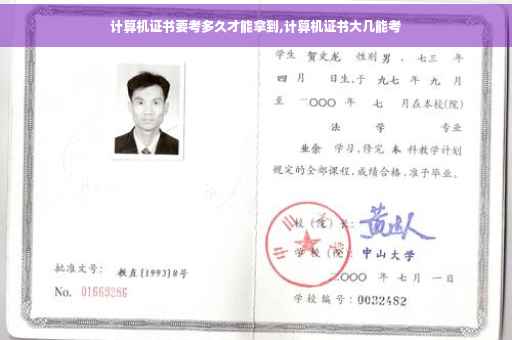 计算机证书要考多久才能拿到,计算机证书大几能考
学生 贺文龙 性别 男 ，七三 年
四 月 日生，于 九七 年 九 月
至 二〇〇〇 年 七 月在本校(院)
法 学 专业
业余 学习，修完 本 科教学计划
规定的全部课程，成绩合格，准予毕业。
校(院)长：
学校(院)：中山大学
二〇〇〇 年 七 月 一 日
批准文号： 教直[1993]8号
No. 01669286
学校编号：0032482